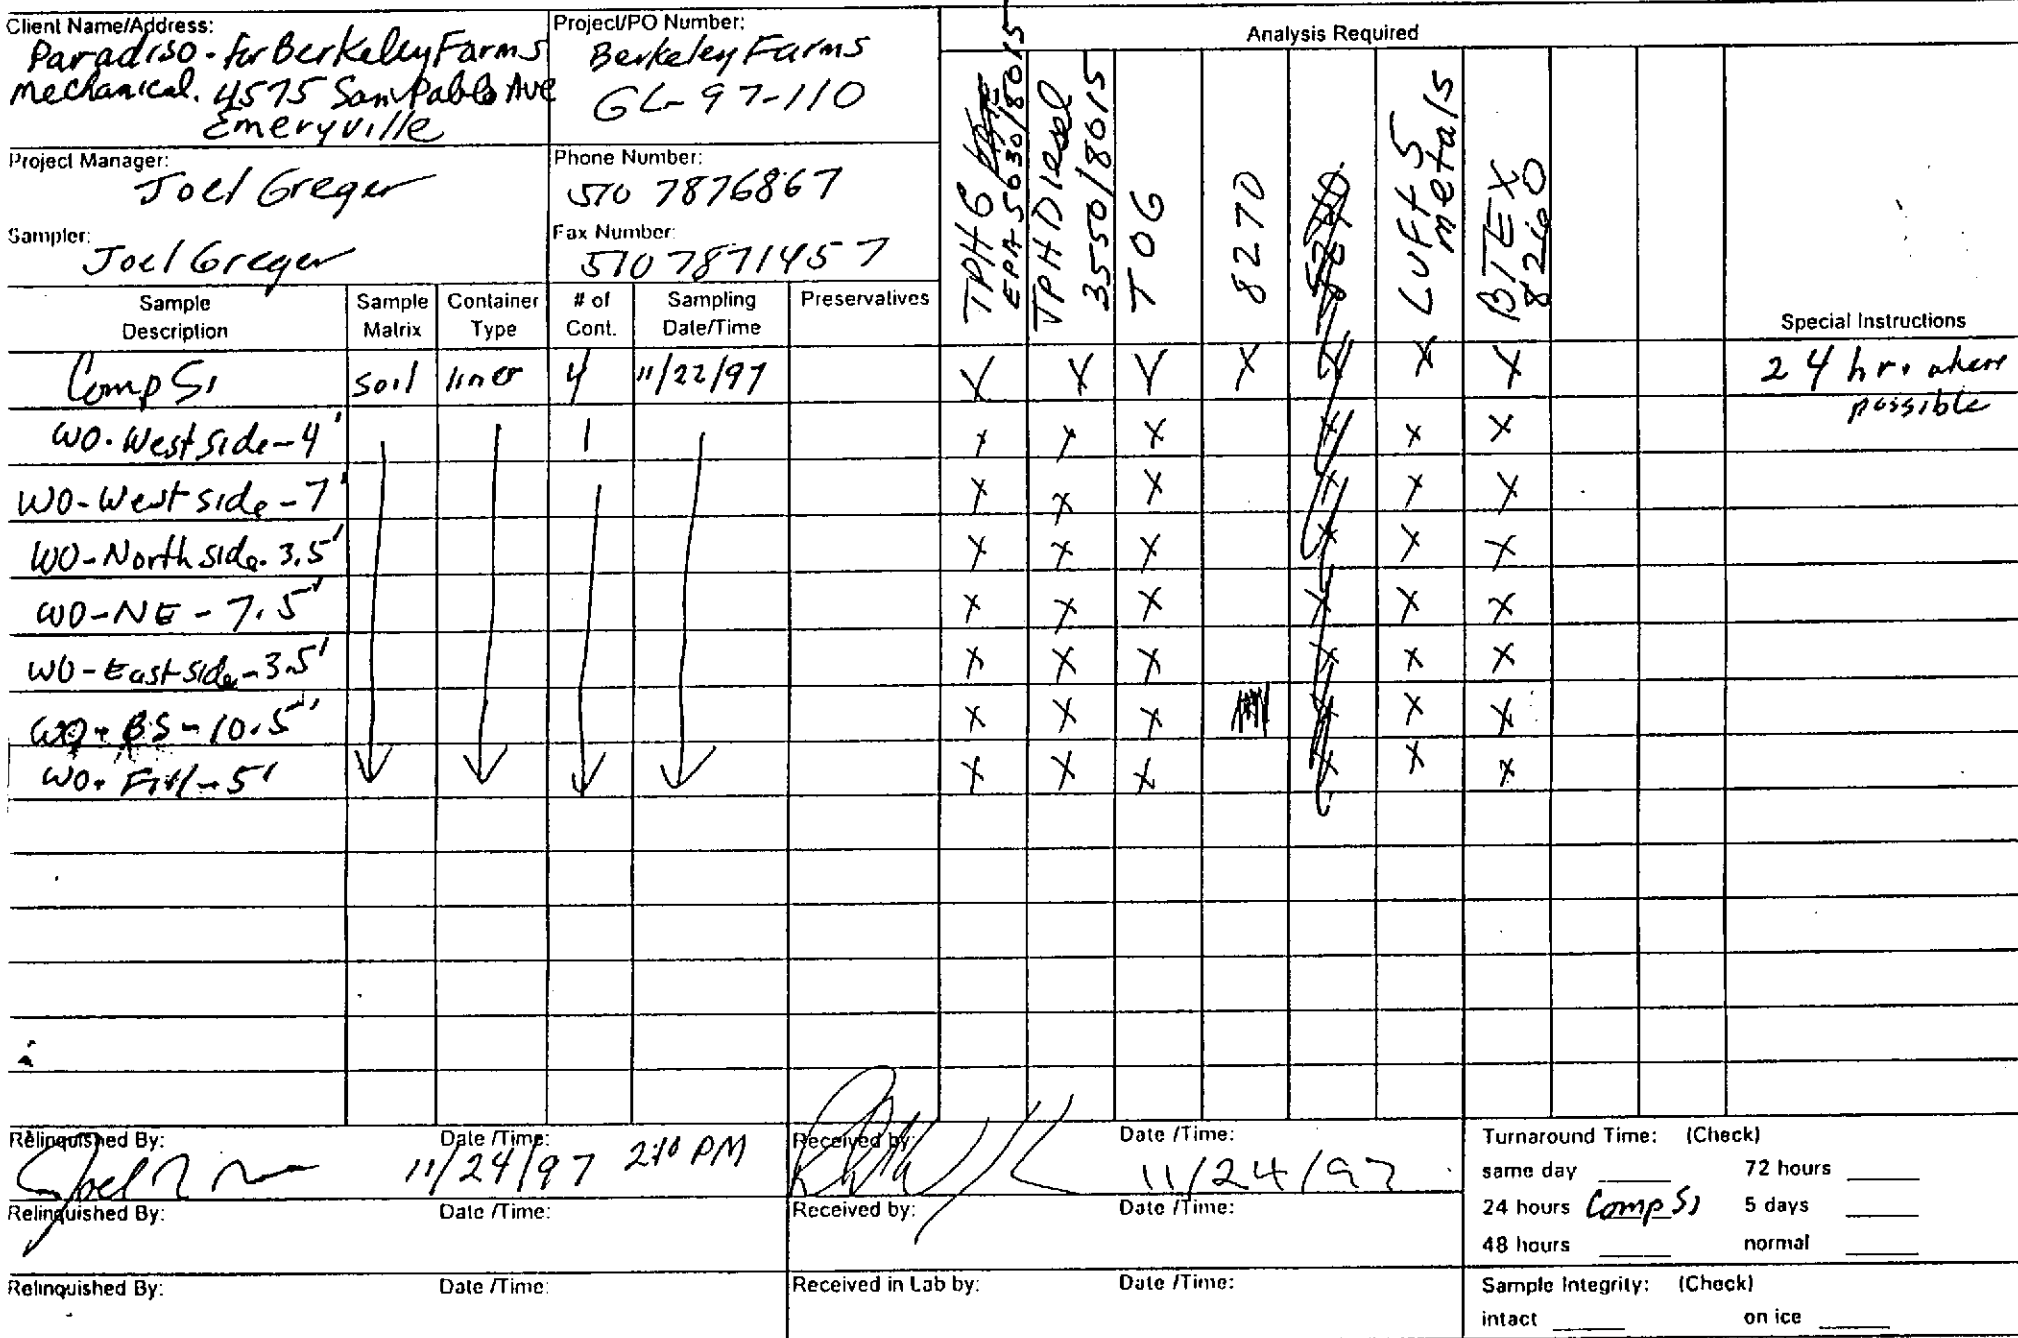 Client Name/Address:
Paradiso - for Berkeley Farms
Mechanical. 4575 San Pablo Ave
Emeryville
Project/PO Number:
Berkeley Farms
GL-97-110
Analysis Required
Project Manager:
Joel Greger
Phone Number:
510 7876867
Sampler:
Joel Greger
Fax Number:
510 7871457
TPHG
EPA 5030/8015
TPH Diesel
3550/8015
TOG
8270
LUFT 5
metals
BTEX
8260
Sample Description
Sample Matrix
Container Type
# of Cont.
Sampling Date/Time
Preservatives
Special Instructions
Comp S1 soil liner 4 11/22/97 X X X X X X X 24 hr. where
possible
WO-West side-4' 1 X X X X X X
WO-West side-7' X X X X X X
WO-North side-3.5' X X X X X X
WO-NE-7.5' X X X X X X
WO-East side-3.5' X X X X X X
WO-BS-10.5' X X X X X X
WO-Fill-5' X X X X X X
Relinquished By:
Date /Time:
11/24/97 2:10 PM
Received by:
Date /Time:
11/24/97
Relinquished By:
Date /Time:
Received by:
Date /Time:
Relinquished By:
Date /Time:
Received in Lab by:
Date /Time:
Turnaround Time: (Check)
same day ______ 72 hours ______
24 hours Comp S1 5 days ______
48 hours ______ normal ______
Sample Integrity: (Check)
intact ______ on ice ______